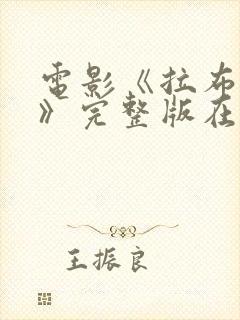 電影《拉布
》完整版在
王振良